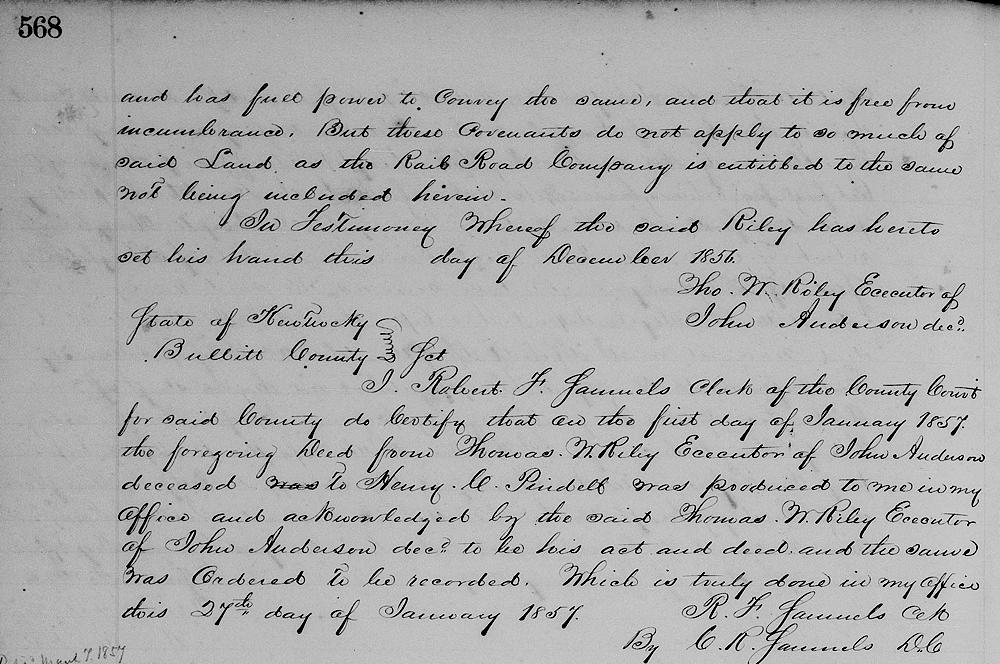 568
and has full power to Convey the same, and that it is free from
incumbrance. But these Covenants do not apply to so much of
said Land as the Rail Road Company is entitled to the same
not being included herein.
In Testimoney Whereof the said Riley has hereto
set his hand this day of December 1856.
Tho. W. Riley Executor of
John Anderson decd.
State of Kentucky
Bullitt County Sct
I. Robert F. Samuels Clerk of the County Court
for said County do Certify that on the first day of January 1857.
the foregoing Deed from Thomas. W. Riley Executor of John Anderson
deceased was to Henry. C. Pindell was produced to me in my
Office and acknowledged by the said Thomas. W. Riley Executor
of John Anderson decd. to be his act and deed. and the same
was Ordered to be recorded. Which is truly done in my Office
this 27th day of January 1857.
R. F. Samuels Clk
By C. R. Samuels D.C
1857